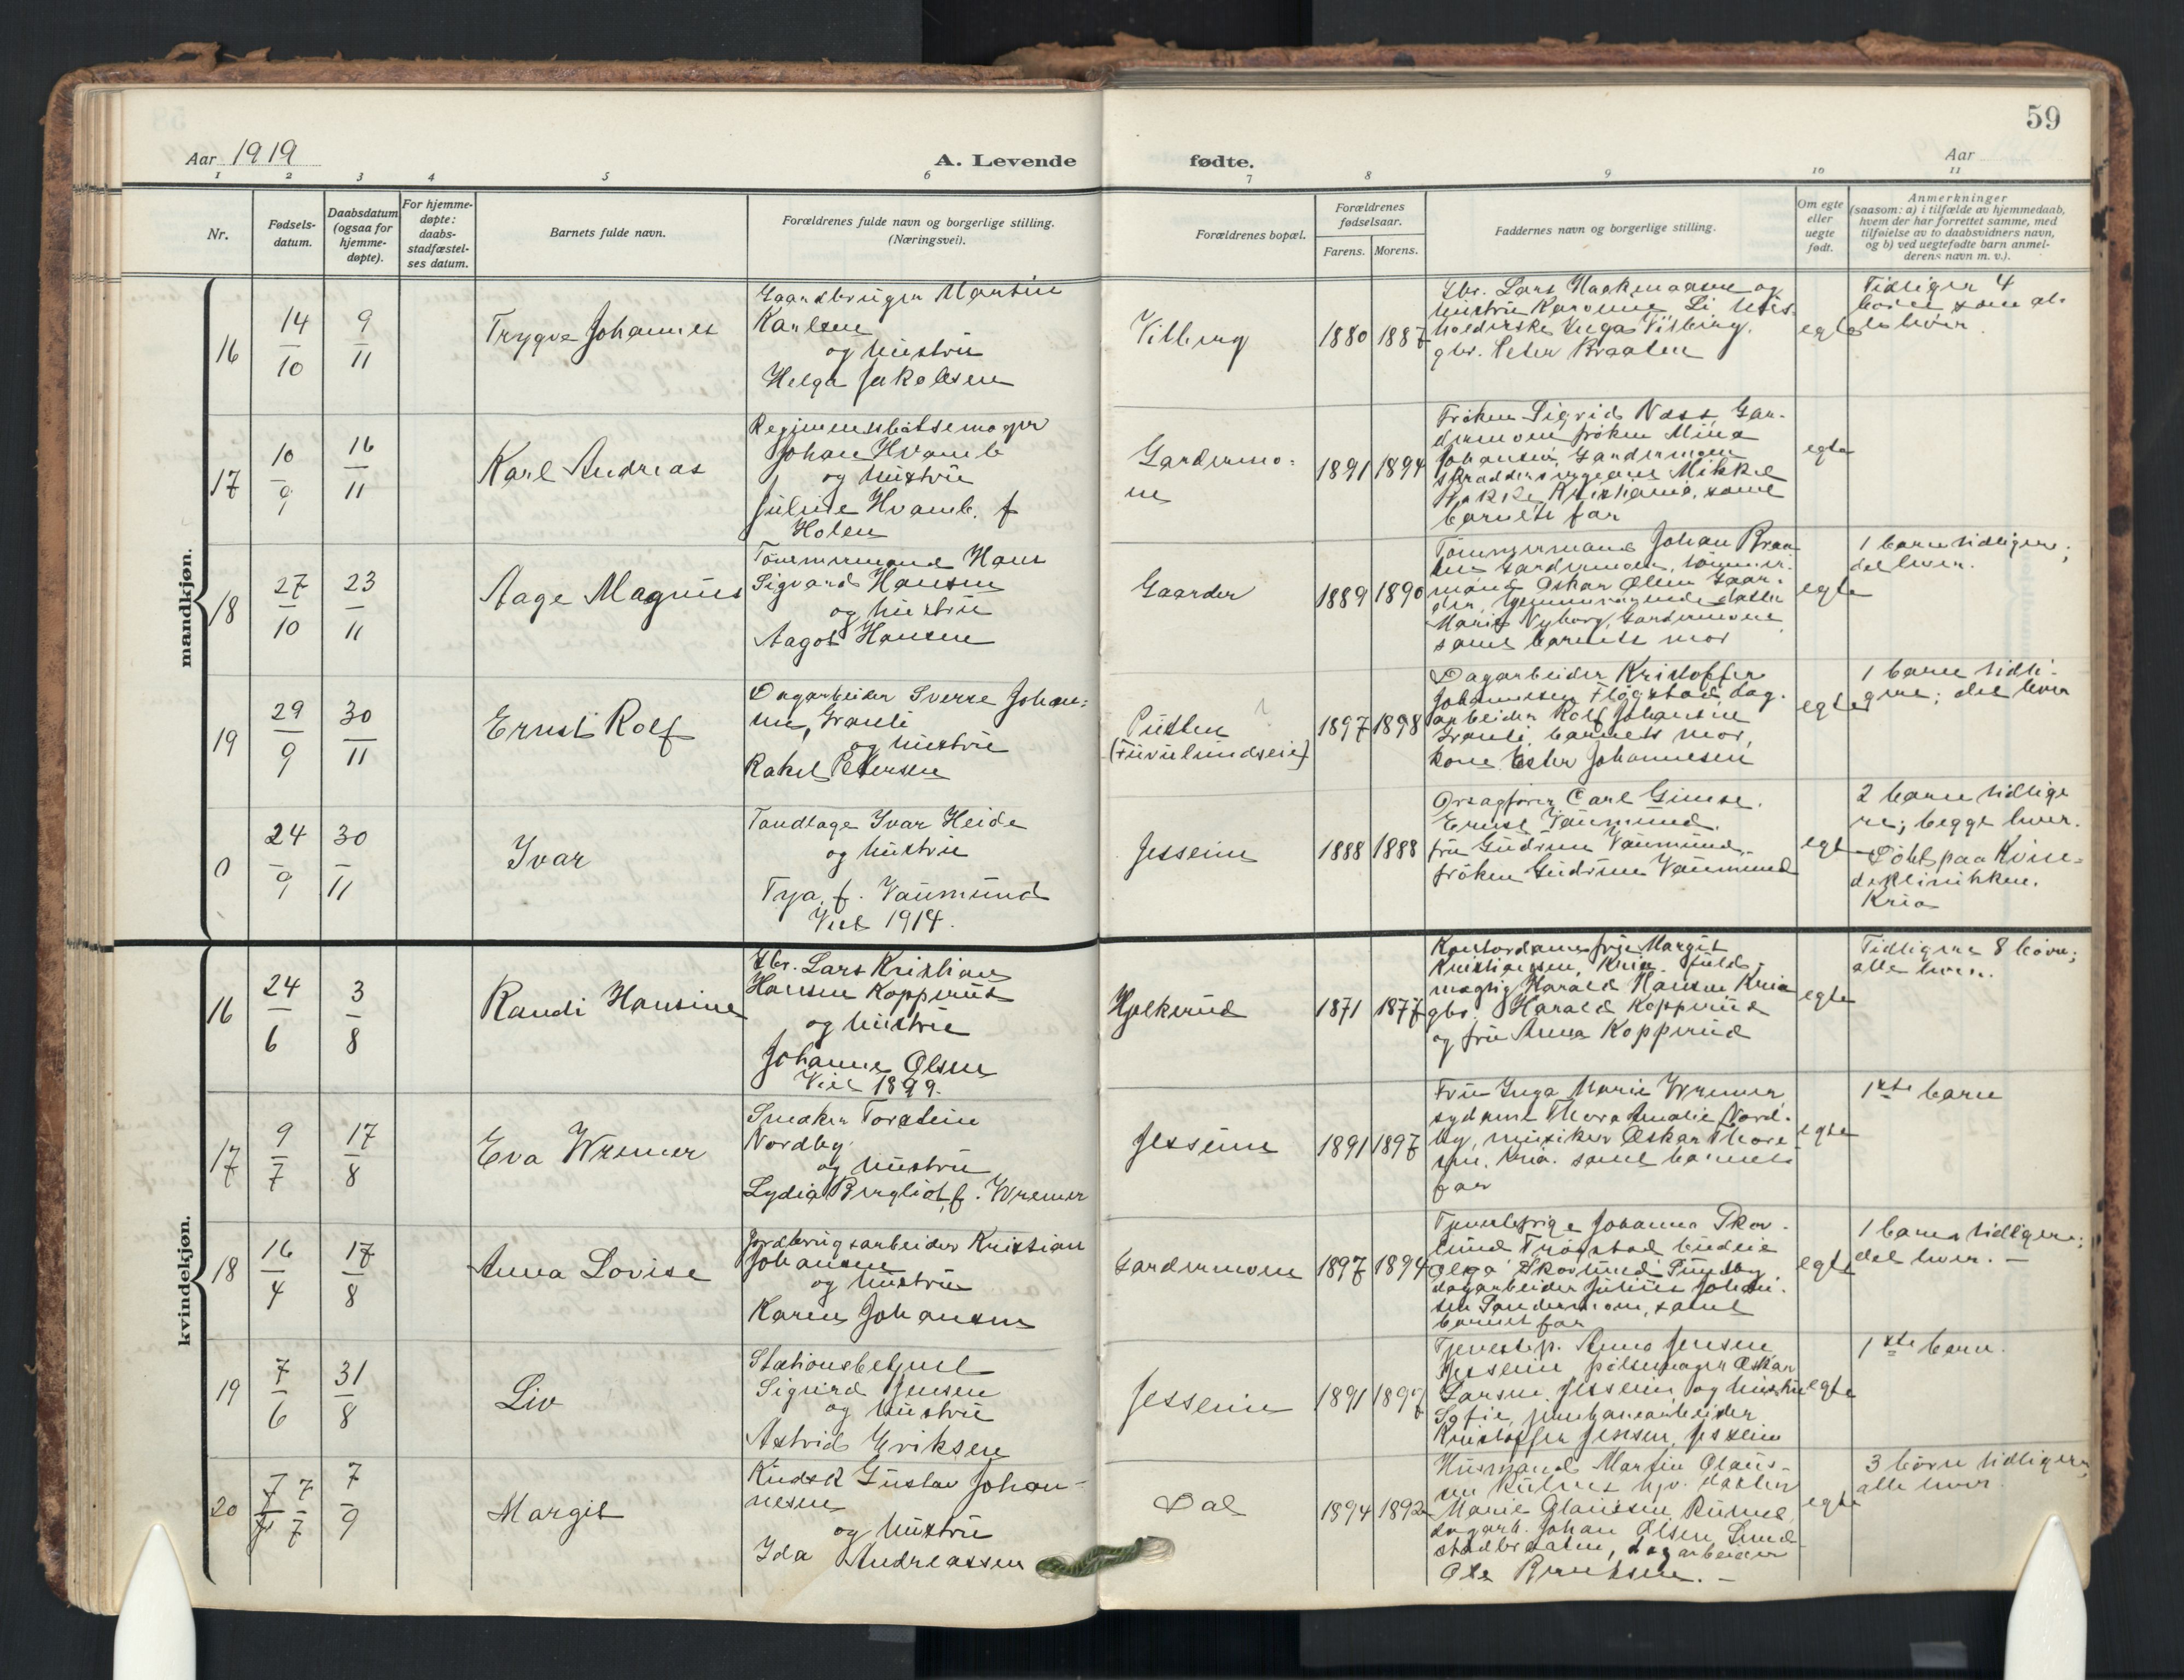 59
Aar 1919
A. Levende
fødte.
Aar
1 2 3 4 5 6 7 8 9 10 11
Nr.
Fødsels-
datum.
Daabsdatum
(ogsaa for
hjemme-
døpte).
For hjemme-
døpte:
daabs-
stadfæstel-
ses datum.
Barnets fulde navn.
Forældrenes fulde navn og borgerlige stilling.
(Næringsvei).
Forældrenes bopæl.
Forældrenes
fødselsaar.
Farens. Morens.
Faddernes navn og borgerlige stilling.
Om egte
eller
uegte
født.
Anmerkninger
(saasom: a) i tilfælde av hjemmedaab,
hvem der har forrettet samme, med
tilføielse av to daabsvidners navn,
og b) ved uegtefødte barn anmel-
derens navn m. v.).
mandkjøn.
16
14/10
9/11
Trygve Johannes
Gaardbruger Martin
Karlsen
og hustru
Helga Jakobsen
Vilberg
1880 1887
Gbr. Lars Haakenaasen og
hustru Karoline Li hus-
holderske Inga Vilberg,
gbr. Peter Braaten
egte
Tidligere 4
børn som al-
le lever.
17
10/9
16/11
Karl Andreas
Regimensbøtsemager
Johan Hvamb
og hustru
Juline Hvamb. f
Holen
Gardermo-
en
1891 1894
Frøken Sigrid Næss, Gar-
dermoen frøken Mina
Johansen, Gardermoen
skræddersvend Mikkel
Bakke, Kristiania, samt
barnets far
egte
18
27/10
23/11
Aage Magnus
Tømmermand Hans
Sigvard Hansen
og hustru
Aagot Hansen
Gaarder
1889 1890
Tømmermand Johan Braa-
ten Gardermoen, tømmer-
mand Oskar Olsen Gaar-
der, hjemmeværende datter
Marit Nyborg, Gardermoen
samt barnets mor
egte
1 barn tidligere;
det lever.
19
29/9
30/11
Ernst Rolf
Dagarbeider Sverre Johan-
sen, Granli
og hustru
Rakel Pettersen
Putten
(Furulundseie)
1897 1898
Dagarbeider Kristoffer
Johannesen Flogstad, dag-
arbeider Rolf Johansen
Granli, barnets mor,
kone Ester Johannesen
egte
1 barn tidli-
gere; det lever
0
24/9
30/11
Ivar
Tandlæge Ivar Heide
og hustru
Tya, f. Vaumund
Viet 1914.
Jesseim
1888 1888
Orsagfører Carl Gimse.
Ernst Vaumund.
fru Gudrun Vaumund.
frøken Gudrun Vaumund
egte
2 barn tidlige
re; begge lever.
Født paa Kvin-
deklinikken.
Kria
kvindekjøn.
16
24/6
3/8
Randi Hansine
Gbr. Lars Kristian
Hansen Kopperud
og hustru
Johanne Olsen
Viet 1899.
Hjelkerud
1871 1877
Kontordame frk. Margit
Kristiansen, Kria. fuld-
mægtig Harald Hansen Kria
gbr. Harald Kopperud
og fru Anna Kopperud
egte
Tidligere 8 børn;
alle lever.
17
9/7
17/8
Eva Wremer
Snekker Torstein
Nordby
og hustru
Lydia Bergliot, f. Wremer
Jesseim
1891 1897
Fru Inga Marie Wremer,
sydame Thora Amalie Nord-
by, musiker Oskar Thore-
sen. Kria. samt barnets
far
egte
1ste barn
18
16/4
17/8
Anna Lovise
Jordbrugsarbeider Kristian
Johansen
og hustru
Karen Johansen
Gardermoen
1897 1894
Tjenestepige Johanna Skov-
lund Trøgstad budeie
Olga Skovlund Sundby
dagarbeider Julius Johan-
sen Gardermoen, samt
barnets far
egte
1 barn tidligere;
det lever. -
19
7/6
31/8
Liv
Stationsbetjent
Sigurd Jensen
og hustru
Astrid Eriksen
Jesseim
1891 1897
Tjenestep. Anna Jensen
Jesseim pølsemager Oskar
Larsen. Jesseim, og hustru
Sofie, jernbanearbeider
Kristoffer Jensen, Jesseim
egte
1ste barn.
20
7/7
7/9
Margit
Kudsk Gustav Johan-
nesen
og hustru
Ida Andreassen
Dal
1894 1892
Husmand Martin Olaus-
sen Rulnes hjv. datter
Marie Olaussen Rulnes,
dagarb. Johan Olsen Sund-
stadbraaten, dagarbeider
Ole Berntsen. -
egte
3 børn tidligere,
alle lever.